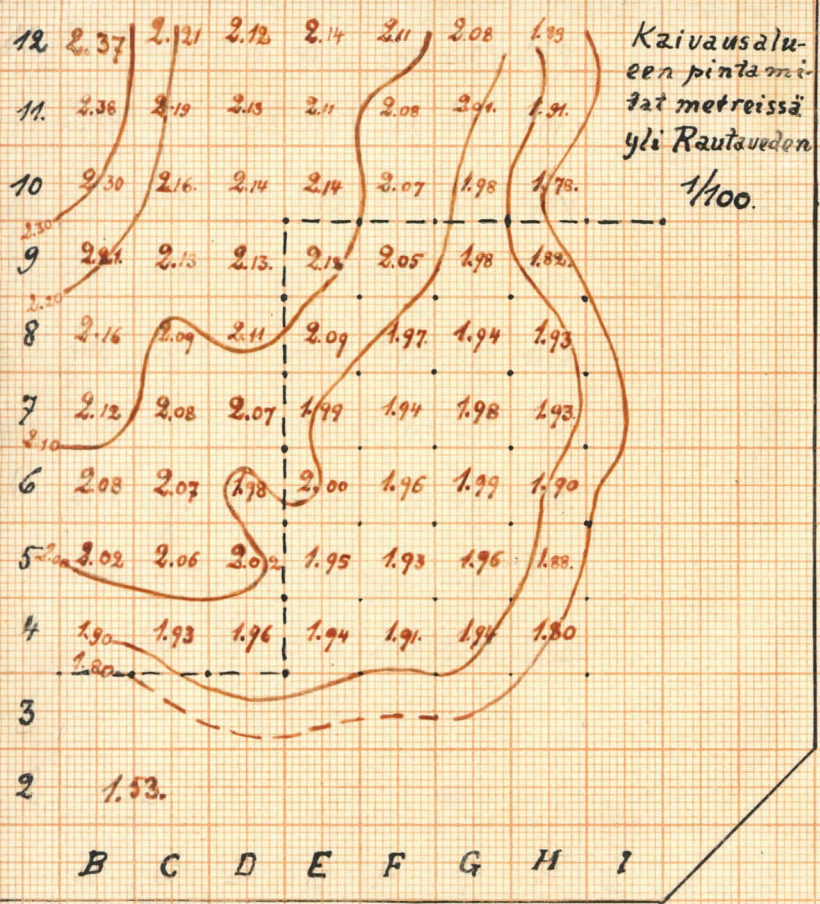 12 2.37 2.21 2.12 2.14 2.11 2.08 1.89
Kaivausalu-
een pinta mi-
tat metreissä
yli Rautaveden
1/100.
11. 2.38 2.19 2.13 2.11 2.08 2.01. 1.91.
10 2.30 2.16. 2.14 2.14 2.07 1.98 1.78.
2.30
9 2.21. 2.13 2.13. 2.12 2.05 1.98 1.82.
2.20
8 2.16 2.09 2.11 2.09 1.97. 1.94 1.93
7 2.12 2.08 2.07 1.99 1.94 1.98 1.93.
2.10
6 2.08 2.07 1.98 2.00 1.96 1.99 1.90
5 2.00 2.02 2.06 2.02 1.95 1.93 1.96 1.88.
4 1.90 1.93 1.96 1.94 1.91. 1.94 1.80
1.80
3
2 1.53.
B C D E F G H I